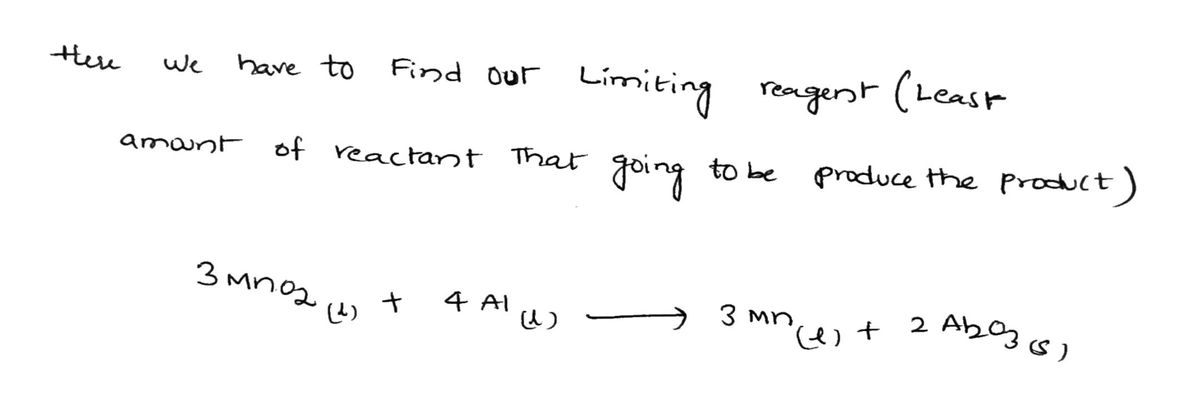 Here we have to Find out Limiting reagent (Least
amount of reactant That going to be produce the product)
3 MnO₂ (l) + 4 Al (l) ⟶ 3 Mn (l) + 2 Al₂O₃ (s)